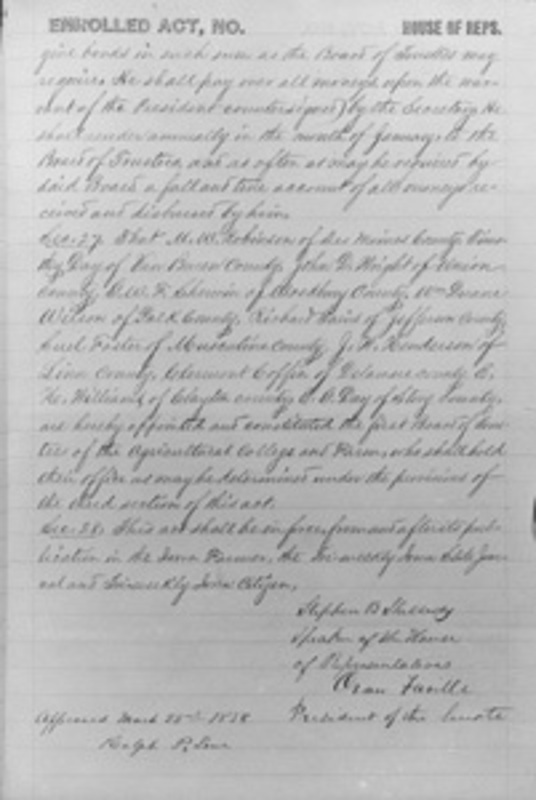 ENROLLED ACT, NO. HOUSE OF REPS.
give bonds in such sum as the Board of Trustees may
require. He shall pay over all moneys upon the war-
rant of the President countersigned by the Secretary. He
shall render annually in the month of January to the
Board of Trustees and as often as may be required by
said Board a full and true account of all moneys re-
ceived and disbursed by him.
Sec. 27. That M. W. Robinson of Des Moines County, Timo-
thy Day of Van Buren County, John D. Wright of Union
County, G. W. F. Sherwin of Woodbury County, Wm Duane
Wilson of Polk County, Richard Gaines of Jefferson County,
Suel Foster of Muscatine County, J. W. Henderson of
Linn County, Clermont Coffin of Delaware County, E.
G. Day of Story County,
are hereby appointed and constituted the first Board of Trus-
tees of the Agricultural College and Farm, who shall hold
their office as may be determined under the provisions of
the third section of this act.
Sec. 28. This act shall be in force from and after its pub-
lication in the Iowa Farmer, the Tri-weekly Iowa State Jour-
nal and Tri-weekly Iowa Citizen.
Stephen B Shelledy
Speaker of the House
of Representatives
Oran Faville
Approved March 22nd 1858 President of the Senate
Ralph P. Lowe